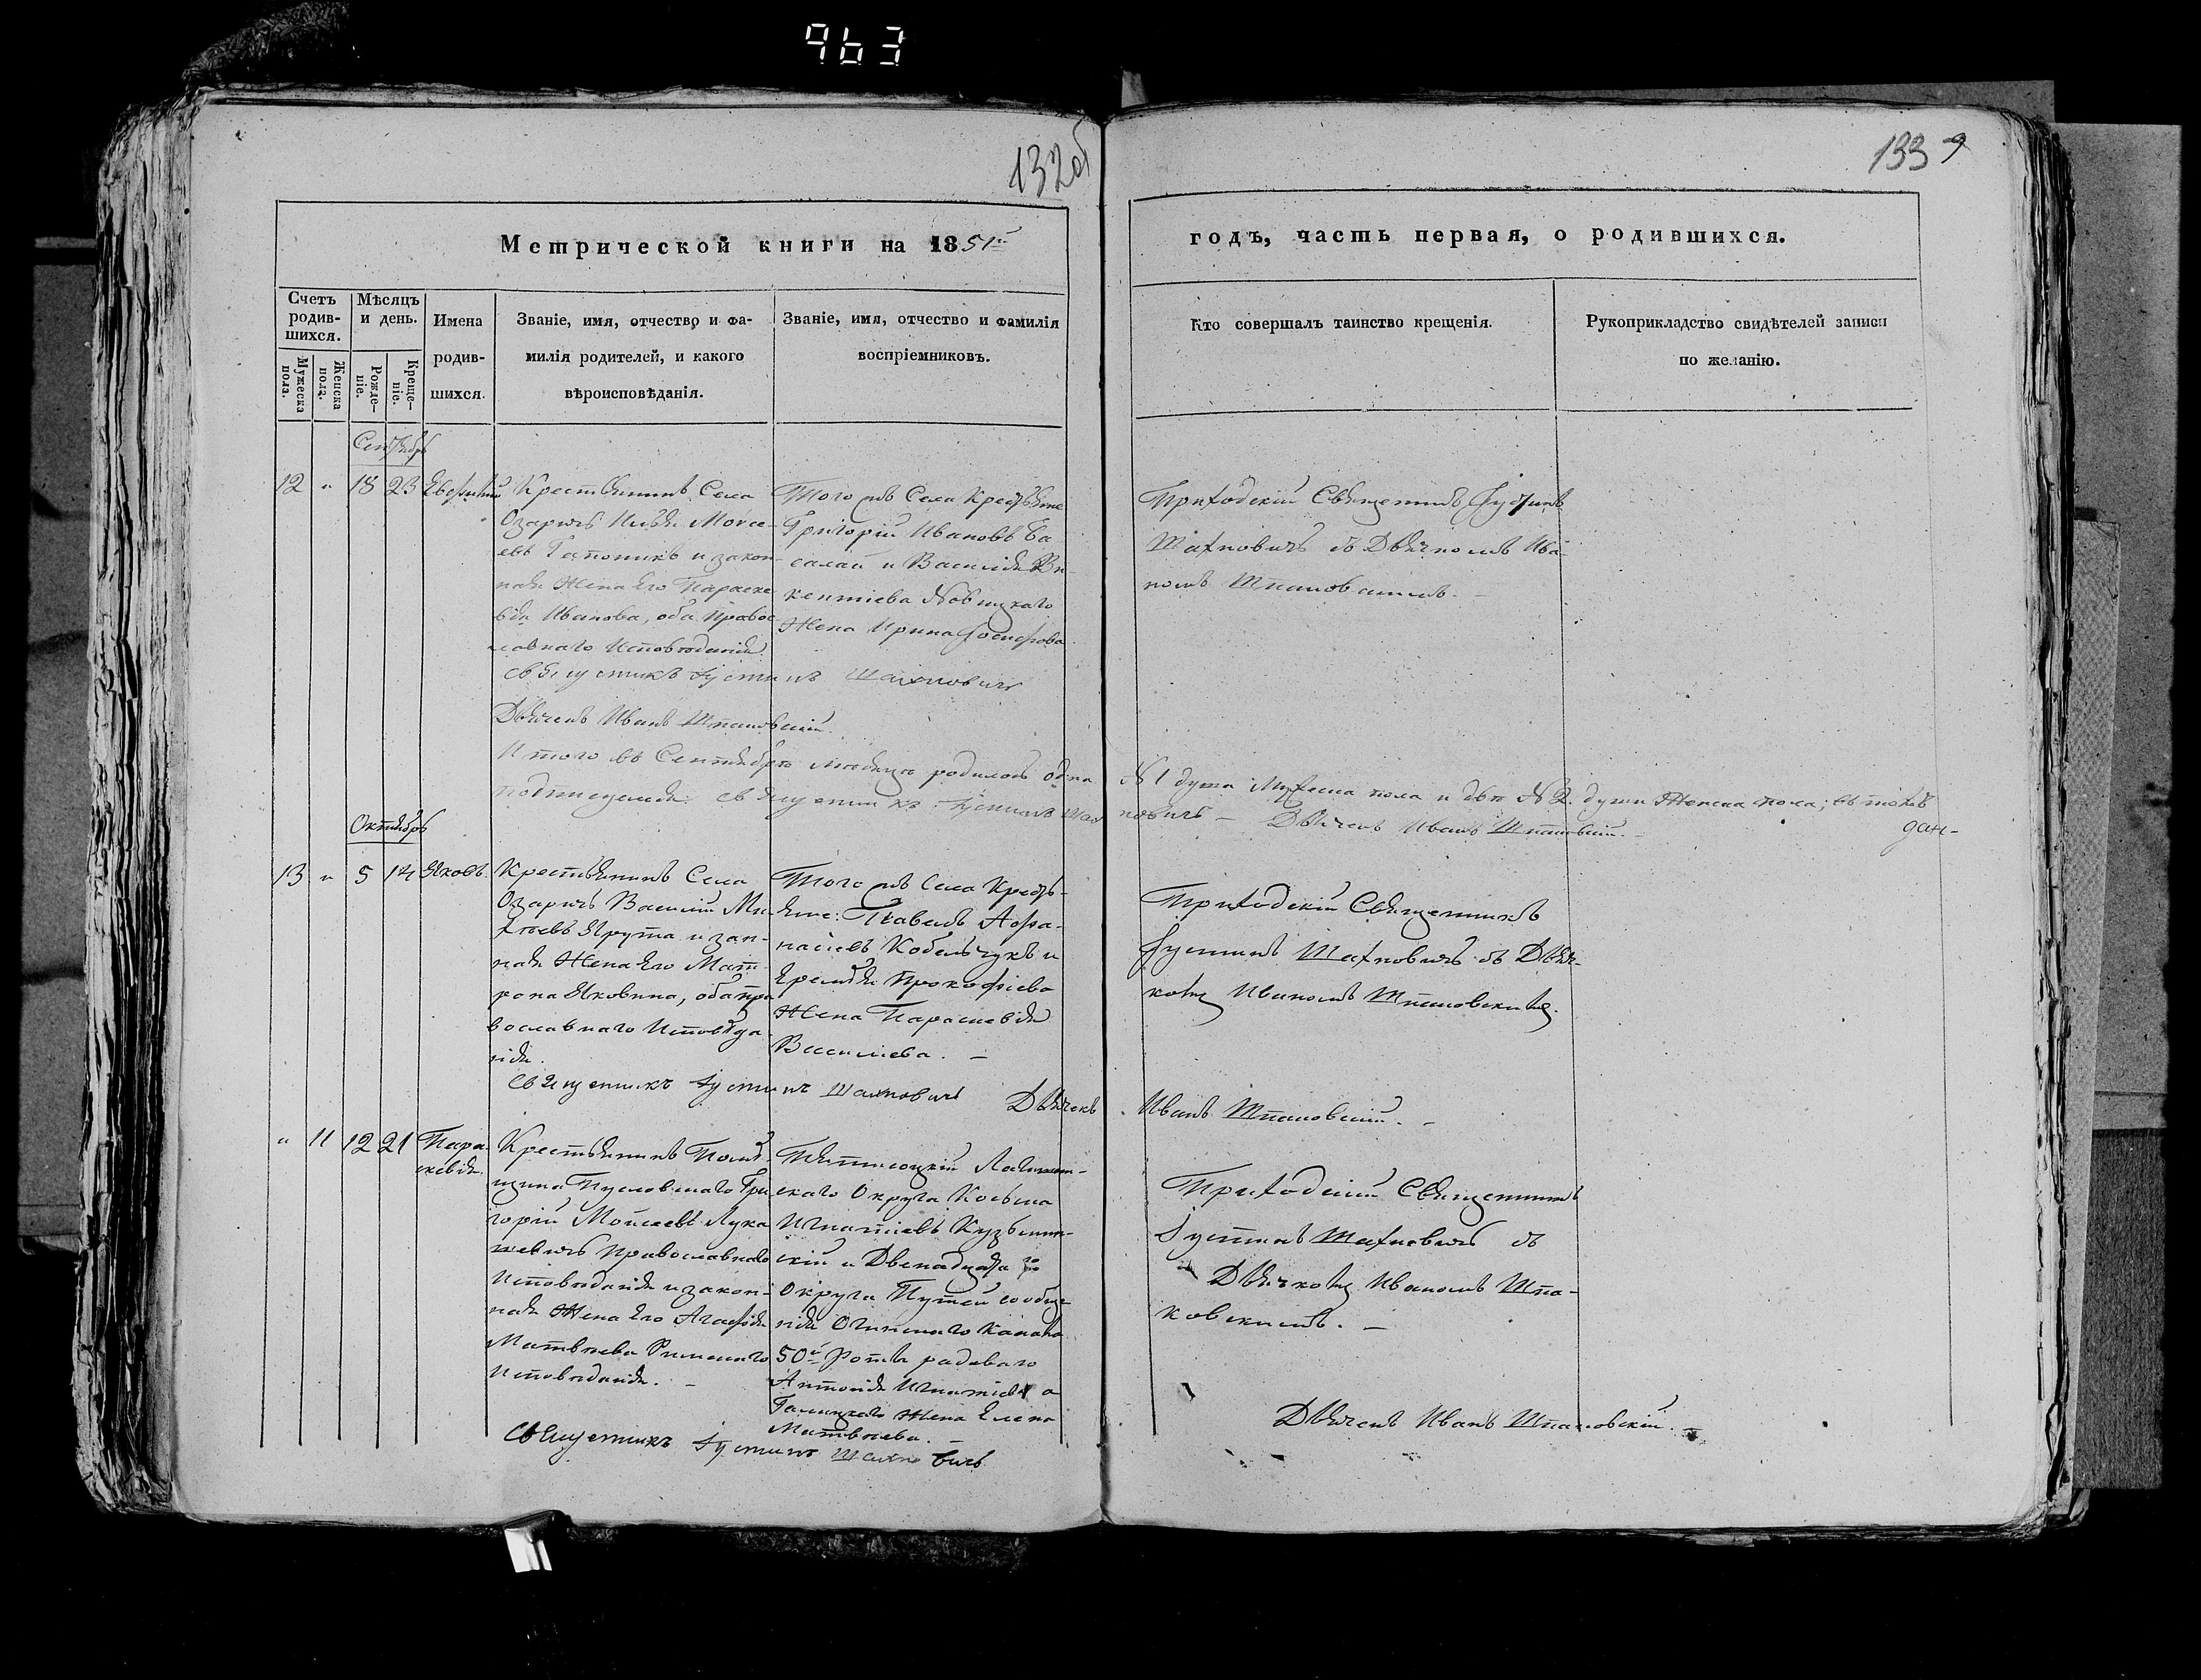 963
132об
133 9
Метрической книги на 1851й
годъ, часть первая, о родившихся.
Счетъ родив-шихся.
Мужеска пола.
Женска пола.
Мѣсяцъ и день.
Рожде-ніе.
Креще-ніе.
Имена родив-шихся.
Званіе, имя, отчество и фа-
милія родителей, и какого
вѣроисповѣданія.
Званіе, имя, отчество и фамилія
воспріемниковъ.
Кто совершалъ таинство крещенія.
Рукоприкладство свидѣтелей записи
по желанію.
Сентябрь
12 " 18 23
Крестьянинъ Села
Озаричъ Илья Моѵсе-
евъ Гапоникъ и закон-
ная Жена Его Параске
вія Иванова, оба Правос
лавнаго Исповѣданія.
Того жъ Села Крестьяне
Григорій Ивановъ Ба
салай и Василія Ви-
кентіева Новицкаго
Жена Ирина Іосифова.
Приходскій Священникъ Іустинъ
Шахновичъ съ Дьячкомъ Ива-
номъ Шпаковскимъ. —
Священникъ Іустинъ Шахновичъ
Дьячекъ Иванъ Шпаковскій.
Итого въ Сентябрѣ мѣсяцѣ родилось одна №1 душа Мужеска пола и двѣ №2. души Женска пола; въ томъ
подписуемся: Священникъ Іустинъ Шахновичъ — Дьячекъ Иванъ Шпаковскій. —
Октябрь
13 " 5 14 Яковъ.
Крестьянинъ Села
Озаричъ Василій Ми-
хѣевъ Ярута и зак-
ная Жена Его Мат-
рона Яковина, оба пра
вославнаго Исповѣда-
нія.
Того жъ Села Кресть-
яне: Павелъ Афа-
насіевъ Кобельчукъ и
Еремія Прокофіева
Жена Параскевія
Василіева. —
Приходскій Священникъ
Іустинъ Шахновичъ съ Дьяч-
комъ Иваномъ Шпаковскимъ.
Священникъ Іустинъ Шахновичъ Дьячекъ Иванъ Шпаковскій. —
" 11 12 21 Пара-
скевія.
Крестьянинъ Помѣ-
щика Пусловскаго Гри
горій Моисеевъ Лука
шевичъ Православнаго
Исповѣданія и закон-
ная Жена Его Агафія
Матвѣева Римскаго
Исповѣданія. —
скаго Округа Косьма
Игнатіевъ
скій и Двенадцата го
Округа Путей сообще
нія Огинскаго Канала
50й Роты рядоваго
Антонія Игнатіева
Галицкаго Жена Елена
Матвѣева. —
Приходскій Священникъ
Іустинъ Шахновичъ съ
Дьячкомъ Иваномъ Шпа-
ковскимъ. —
Священникъ Іустинъ Шахновичъ
Дьячекъ Иванъ Шпаковскій. —